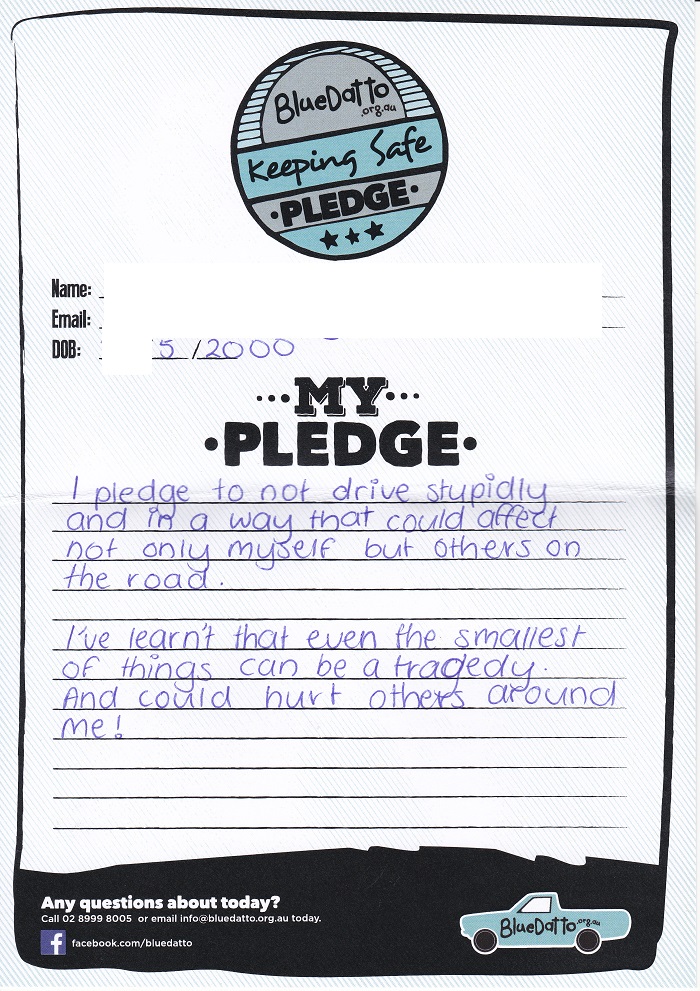 BlueDatto
.org.au
Keeping Safe
•PLEDGE•
Name:
Email:
DOB: 5 /2000
...MY...
•PLEDGE•
I pledge to not drive stupidly
and in a way that could affect
not only myself but others on
the road.
I've learn't that even the smallest
of things can be a tragedy.
And could hurt others around
me!
Any questions about today?
Call 02 8999 8005 or email info@bluedatto.org.au today.
facebook.com/bluedatto
BlueDatto.org.au